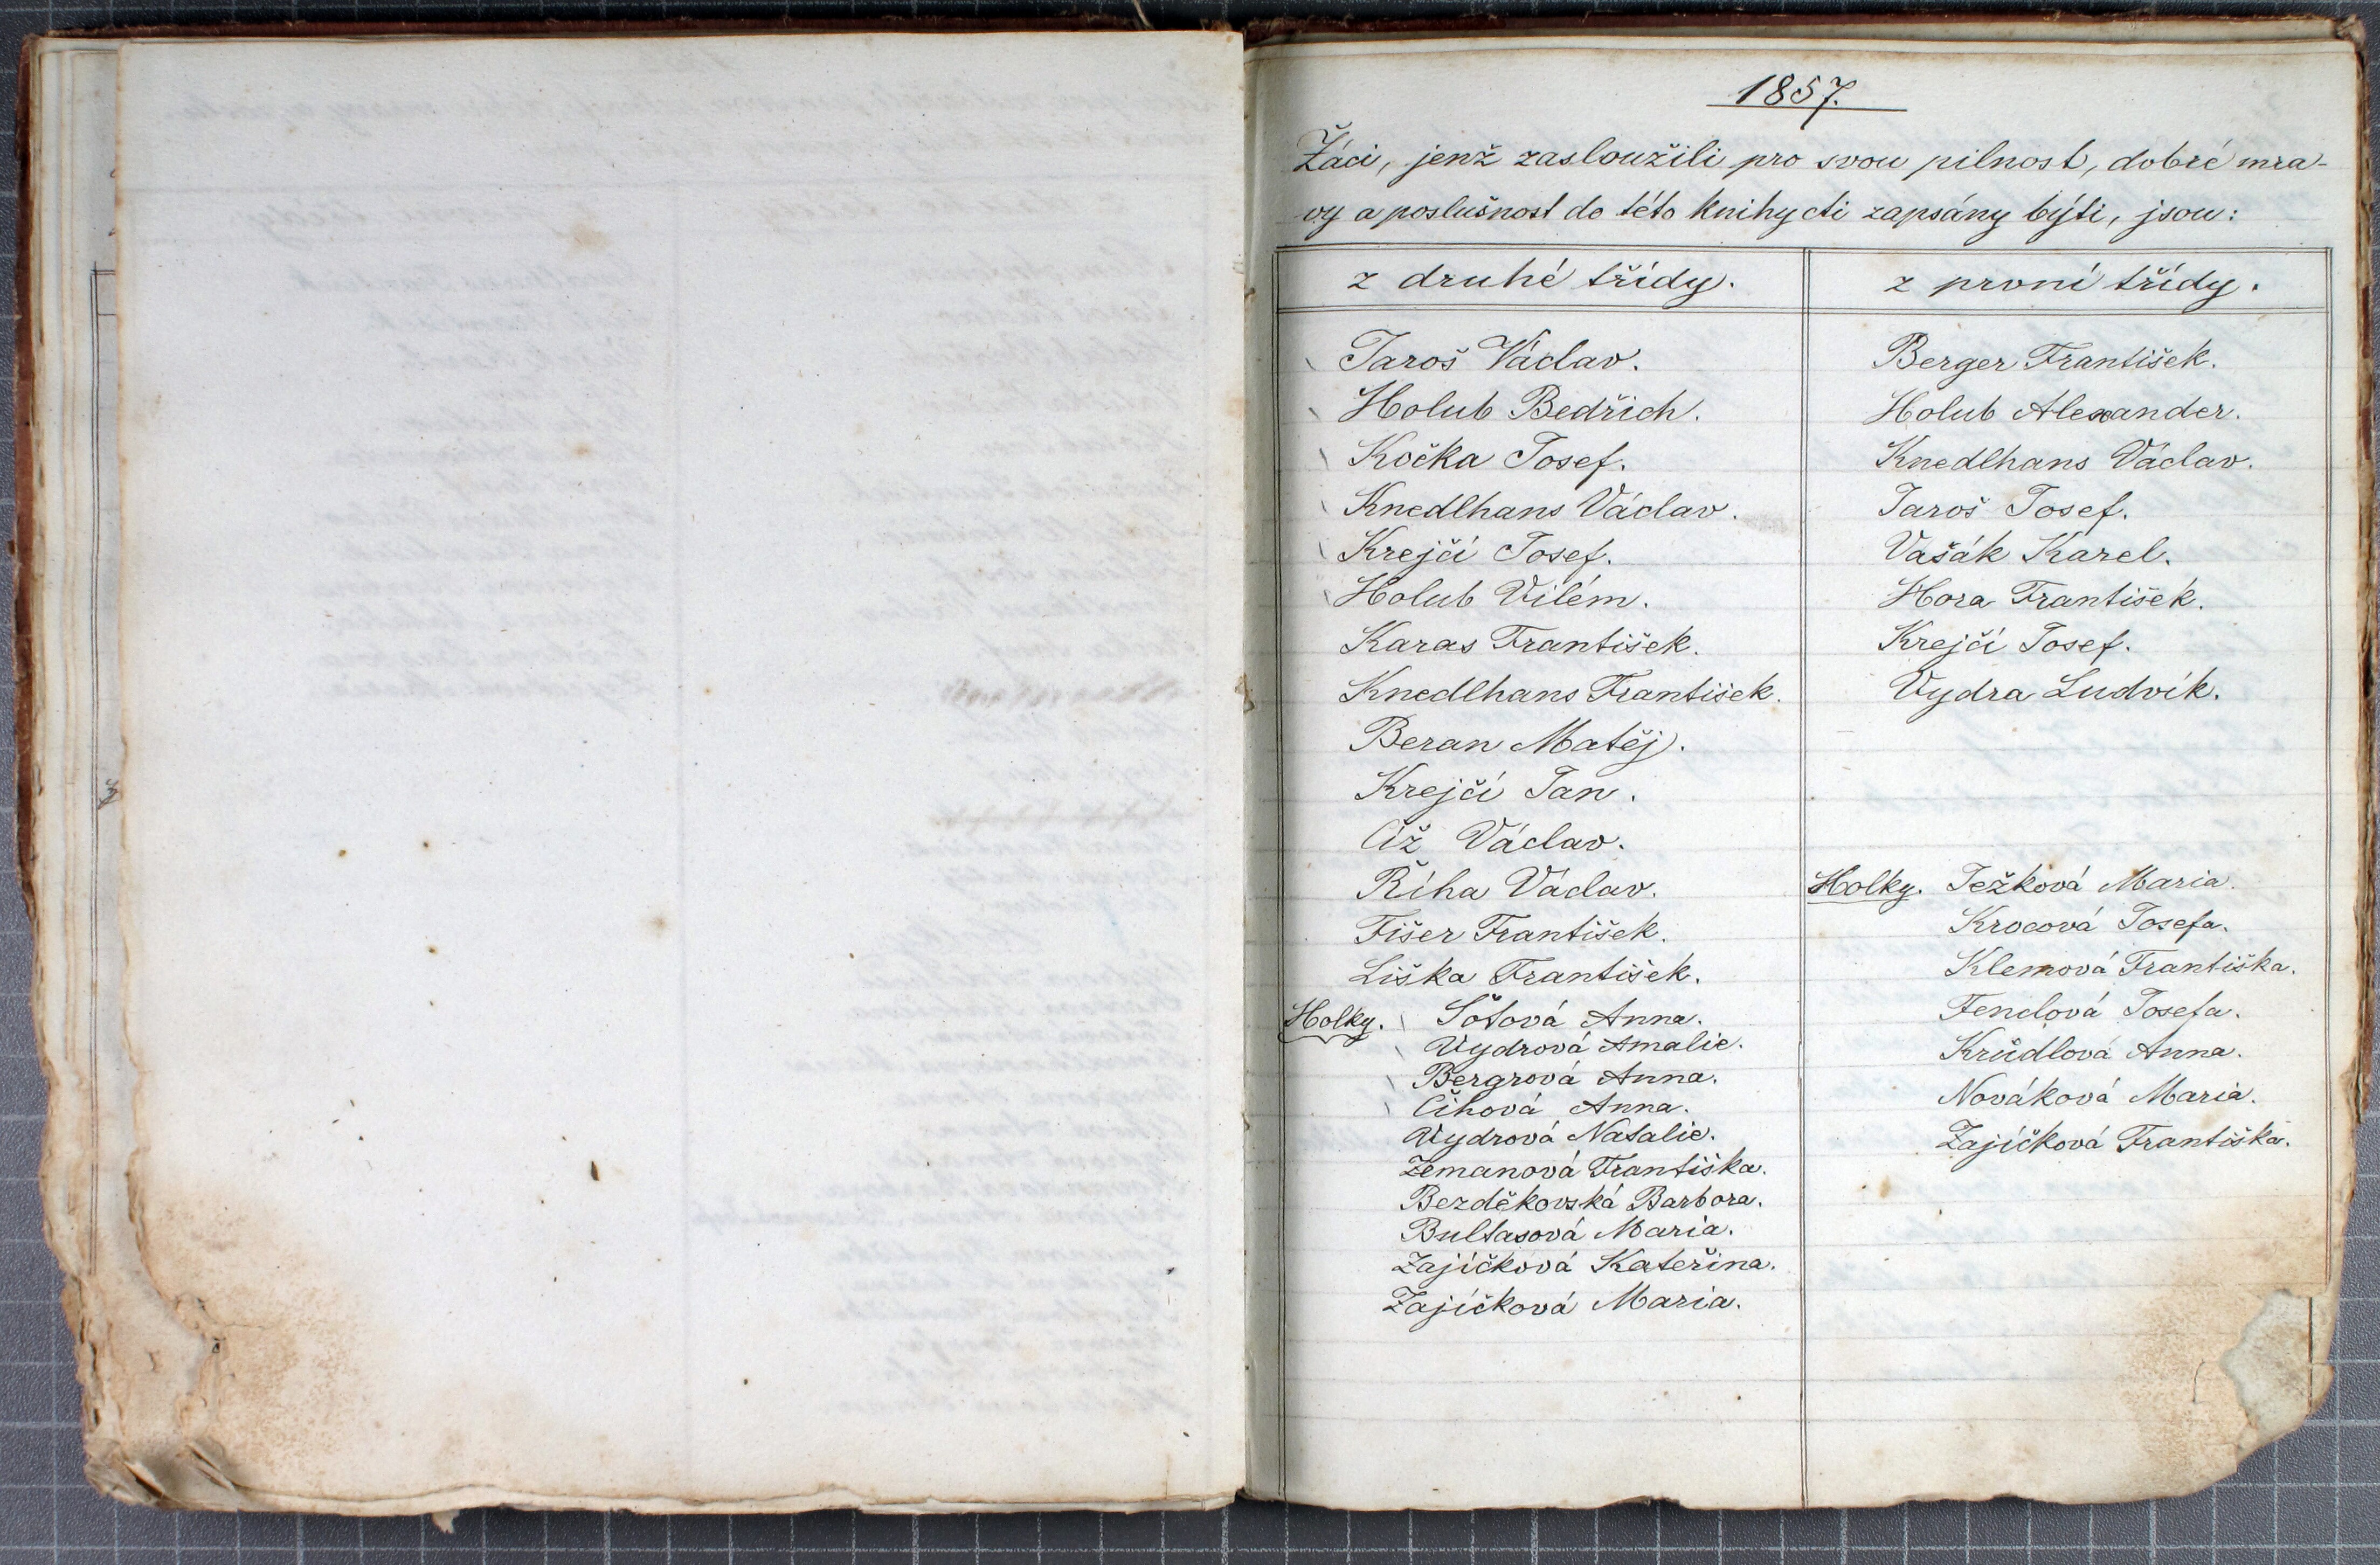 1857.
Žáci, jenž zasloužili pro svou pilnost, dobré mra-
vy a poslušnost do této knihy cti zapsány býti, jsou:
z druhé třídy.
Jaroš Václav.
Holub Bedřich.
Kočka Josef.
Knedlhans Václav.
Krejčí Josef.
Holub Vilém.
Karas František.
Knedlhans František.
Beran Matěj.
Krejčí Jan.
Číž Václav.
Říha Václav.
Fišer František.
Liška František.
Holky. Šötová Anna.
Vydrová Amalie.
Bergrová Anna.
Číhová Anna.
Vydrová Natalie.
Zemanová Františka.
Bezděkovská Barbora.
Bultasová Maria.
Zajíčková Kateřina.
Zajíčková Maria.
z první třídy.
Berger František.
Holub Alexander.
Knedlhans Václav.
Jaroš Josef.
Vašák Karel.
Hora František.
Krejčí Josef.
Vydra Ludvík.
Holky. Ježková Maria.
Krocová Josefa.
Klemová Františka.
Fendlová Josefa.
Krůdlová Anna.
Nováková Maria.
Zajíčková Františka.